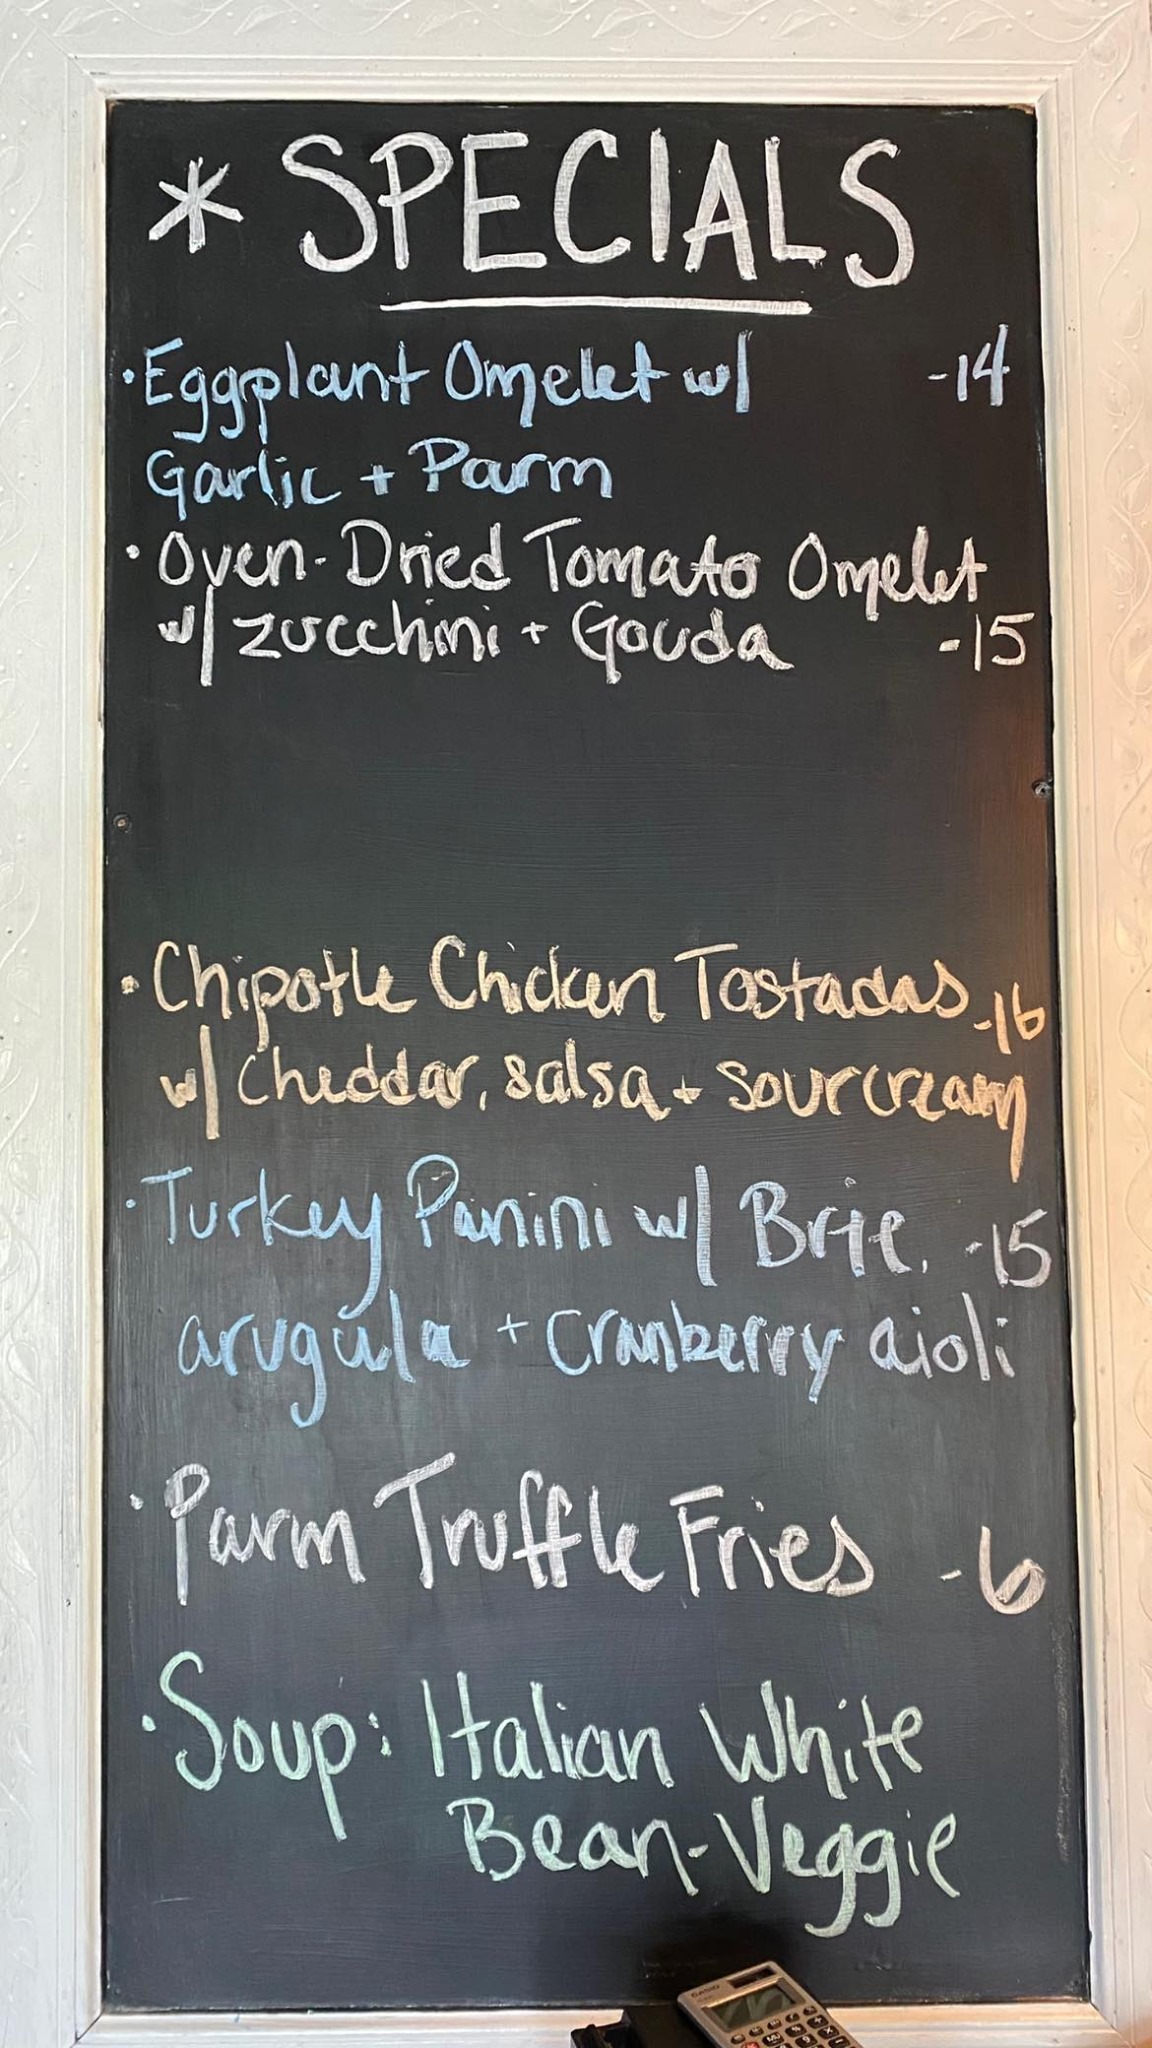 * SPECIALS
· Eggplant Omelet w/ -14
Garlic + Parm
· Oven-Dried Tomato Omelet
w/ zucchini + Gouda -15
· Chipotle Chicken Tostadas -16
w/ cheddar, salsa + sour cream
· Turkey Panini w/ Brie, -15
arugula + cranberry aioli
· Parm Truffle Fries -6
· Soup: Italian White
Bean-Veggie
CASIO